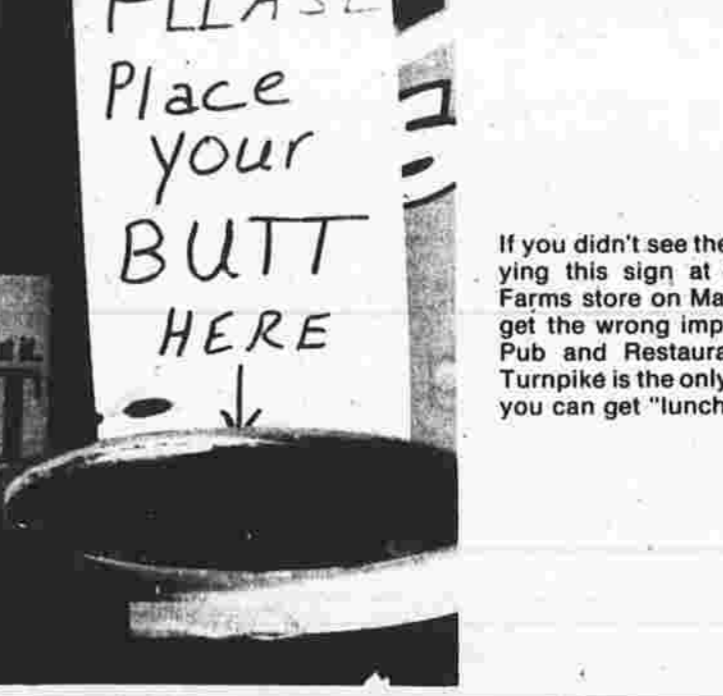 PLEASE
Place
your
BUTT
HERE
If you didn't see the
ying this sign at
Farms store on Ma
get the wrong imp
Pub and Restaura
Turnpike is the only
you can get "lunch